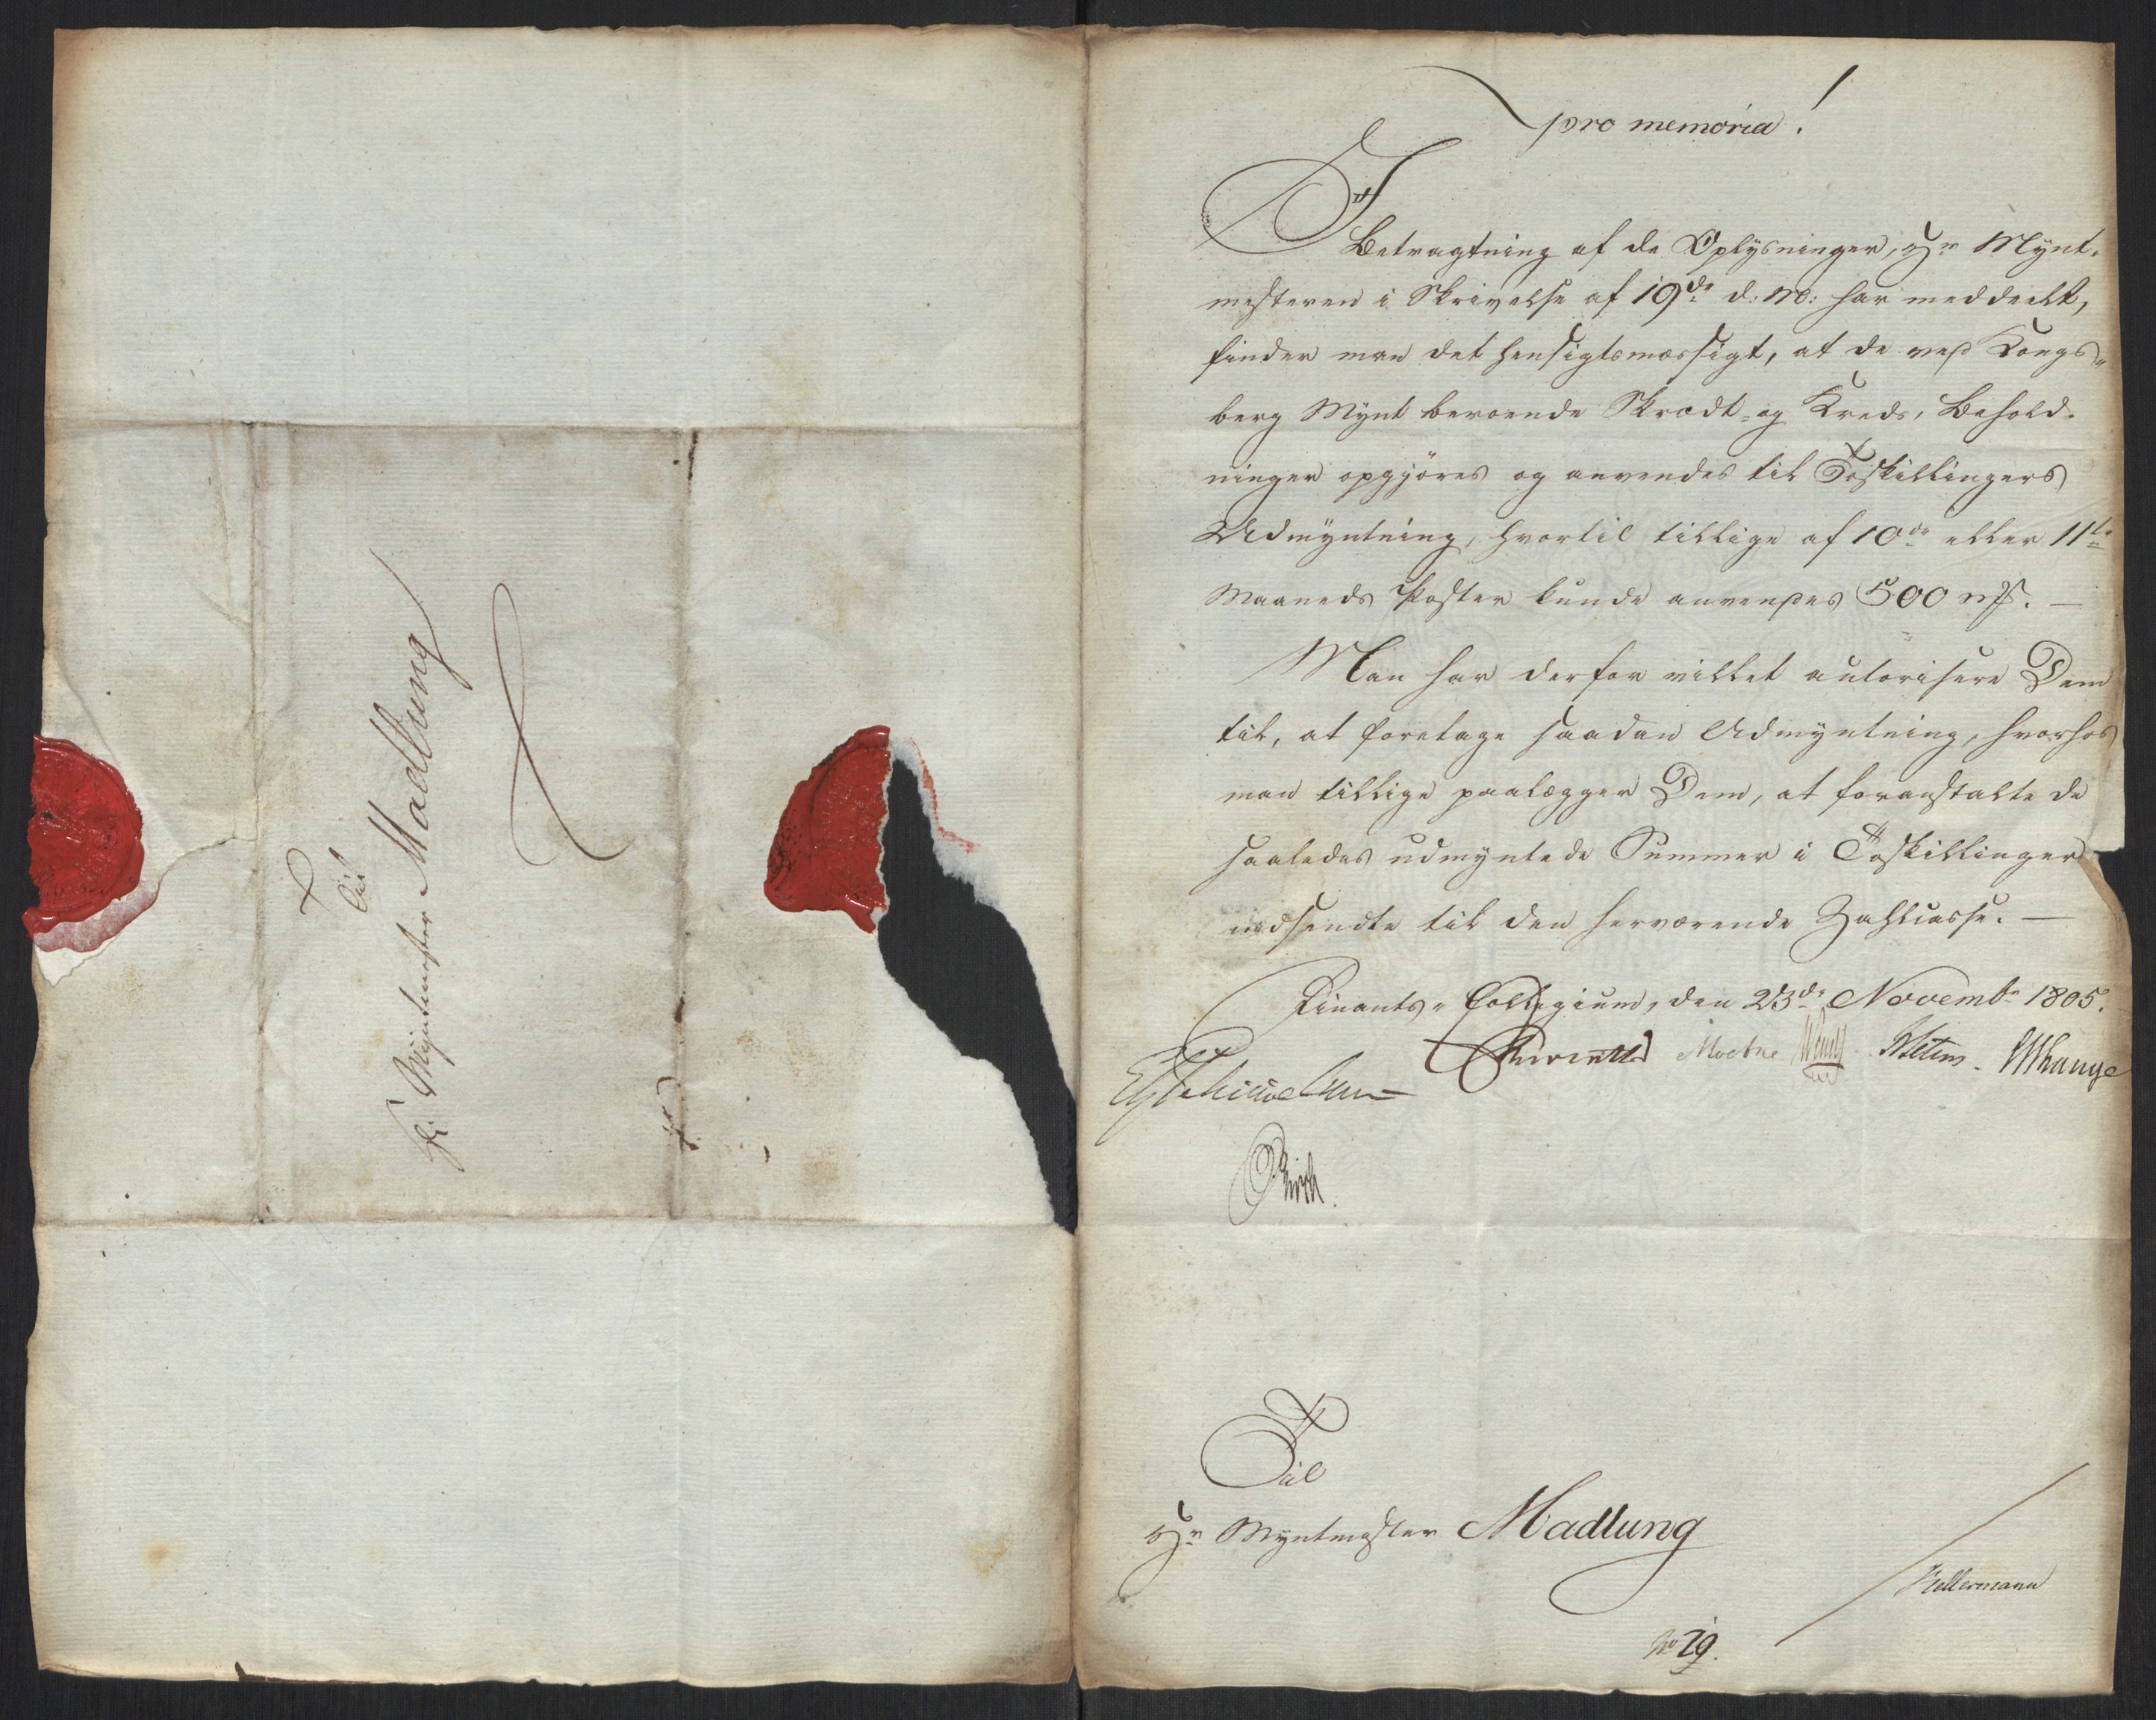 Til
Hr: Myntmester Madlung
pro memoria!
I
Betragtning af de Oplysninger, Hr Mynt-
mesteren i Skrivelse af 19de d: M: har meddeelt,
finder man det hensigtsmæssigt, at de ved Kongs-
berg Mynt beroende Skrædt- og Kreds- Behold-
ninger opgjöres og anvendes til Toskillingers
Udmyntning, hvortil tillige af 10de eller 11te
Maaneds Poster kunde anvendes 500 mk. —
Man har derfor villet autorisere Dem
til, at foretage saadan Udmyntning, hvorhos
man tillige paalægger Dem, at foranstalte de
saaledes udmyntede Summer i Toskillinger
nedsendte til den herværende Zahlcasse. —
Finants- Collegium, den 23de Novembr 1805.
Schimmelmann
Til
Hr Myntmester Madlung
Kellermann
No 29.